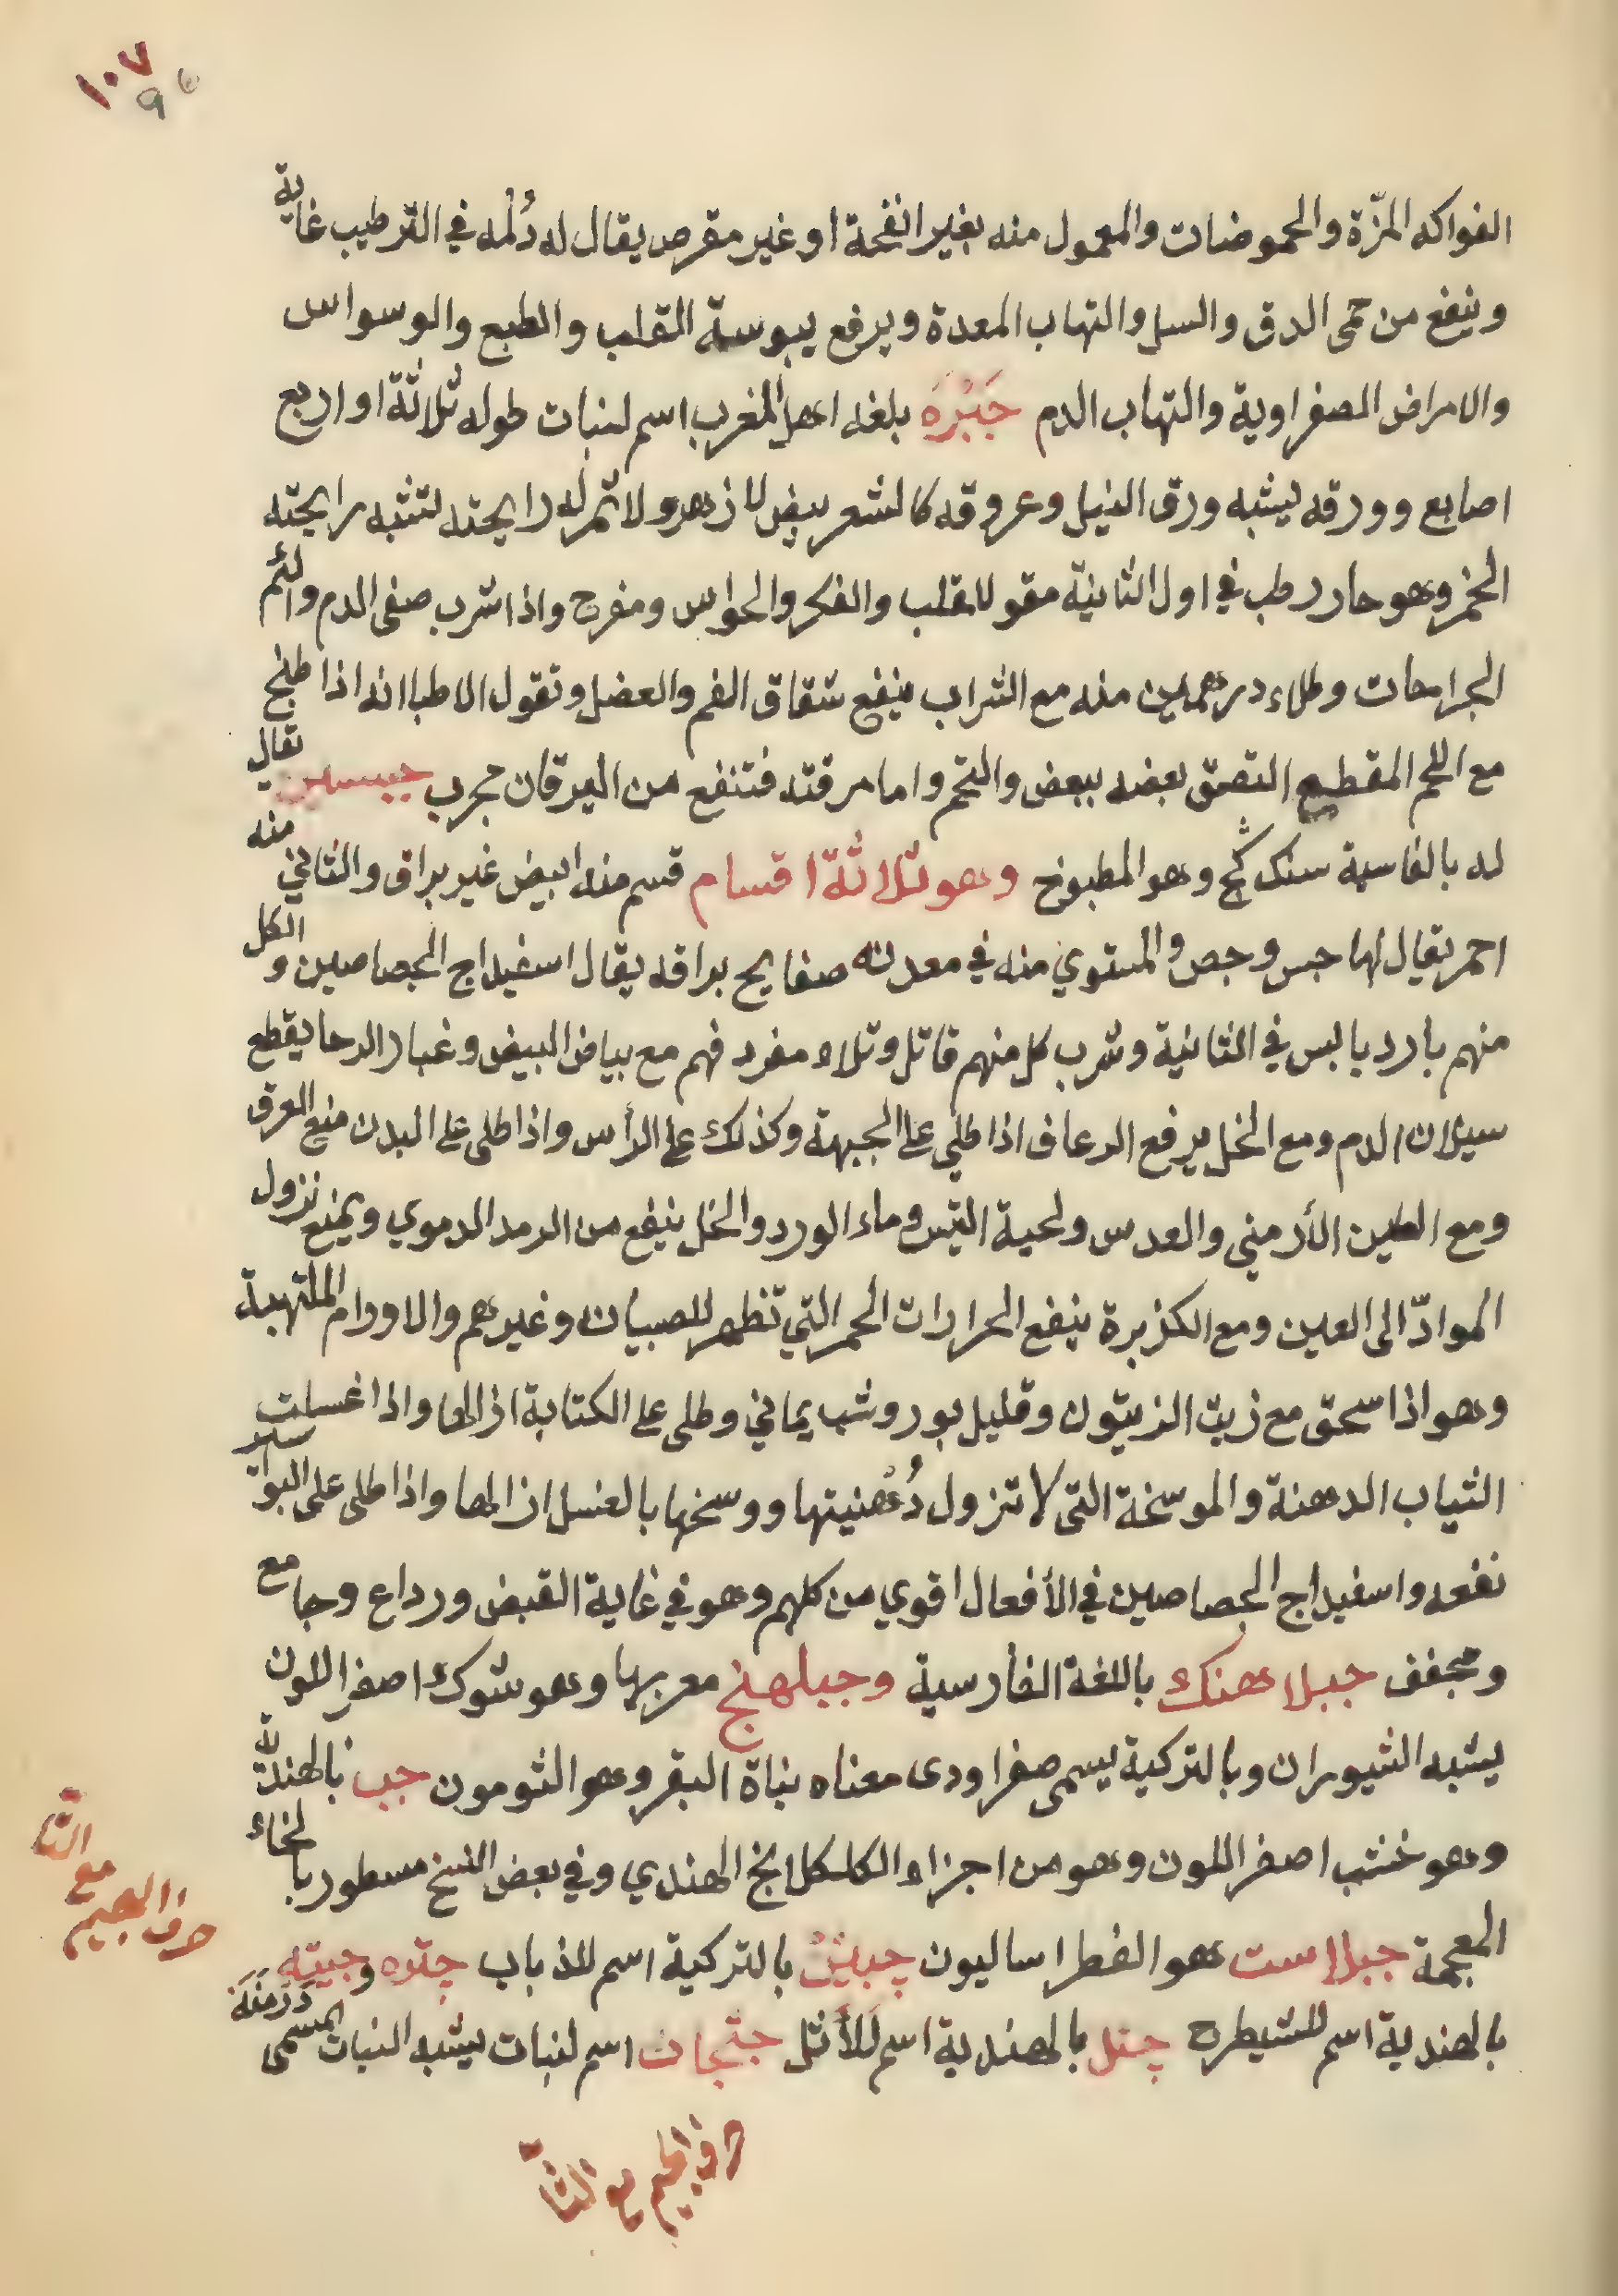 ١٠٧
٩
الفواكه المزّة والحموضات والمعمول منه بغير انفحة او غير مقرص يقال له دُلْمه في الترطيب غاية
وينفع من حمى الدق والسل والتهاب المعدة ويرفع يبوسة القلب والطبع والوسواس
والامراض الصفراوية والتهاب الدم جَبْرَه بلغه اهل المغرب اسم لنبات طوله ثلاثة او اربع
اصابع وورقه يشبه ورق النيل وعروقه كالشعر بيض لا زهر ولا ثمر له رايحته تشبه رايحته
الخمر وهو حار رطب في اول الثانية مقو للقلب والفكر والحواس ومفرح واذا شرب صفى الدم والئم
الجراحات وطلاء درهمين منه مع الشراب ينفع شقاق الفم والعضل وتقول الاطبا انه اذا طبخ
مع اللحم المقطع التصق بعضه ببعض والتحم واما مرقته فتنفع من اليرقان مجرب جبسين يقال
له بالفاسية سنك كچ وهو المطبوخ وهو ثلاثة اقسام قسم منه ابيض غير براق والثاني منه
احمر يقال لهما جبس وجص والمستوي منه في معدنه صفايح براقه يقال اسفيداج الجصاصين والكل
منهم بارد يابس في الثانية وشرب كل منهم قاتل وتلاء مفرد فهم مع بياض البيض وغبار الرحا يقطع
سيلان الدم ومع الخل يرفع الرعاف اذا طلي على الجبهة وكذلك على الرأس واذا طلى على البدن منع العرق
ومع الطين الأرمني والعدس ولحية التيس وماء الورد والخل ينفع من الرمد الدموي ويمنع نزول
الموادّ الى العين ومع الكزبرة ينفع الحرارات الحمر التي تظهر للصبيان وغيرهم والاورام الملتهبة
وهو اذا سحق مع زيت الزيتون وقليل بور وشب يماني وطلى على الكتابة ازالها واذا غسلت
الثياب الدهنة والموسخة التى لا تزول دُهنيتها ووسخها بالغسل ازالها واذا طلى على البواسير
نفعه واسفيداج الجصاصين في الأفعال اقوي من كلهم وهو في غاية القبض ورداع وجامع
ومجفف جبلاهنك باللغة الفارسية وجبلهنج معربها وهو شوك اصفر اللون
يشبه الشيوران وبالتركية يسمى صفرا ودى معناه بناة البقر وهو الثومون جب بالهندية
وهو خشب اصفر اللون وهو من اجزاء الكلكلانج الهندي وفي بعض النسخ مسطور بالخاء
المعجمة جبلاست هو الفطراساليون چبين بالتركية اسم للذباب چتره وجيته
بالهندية اسم للشيطرح چتل بالهندية اسم للأثل جثجاث اسم لنبات يشبه النبات المسمى دَرْمَنَه
حرف الجيم
مع
التّا
حرف الجيم مع الثّا